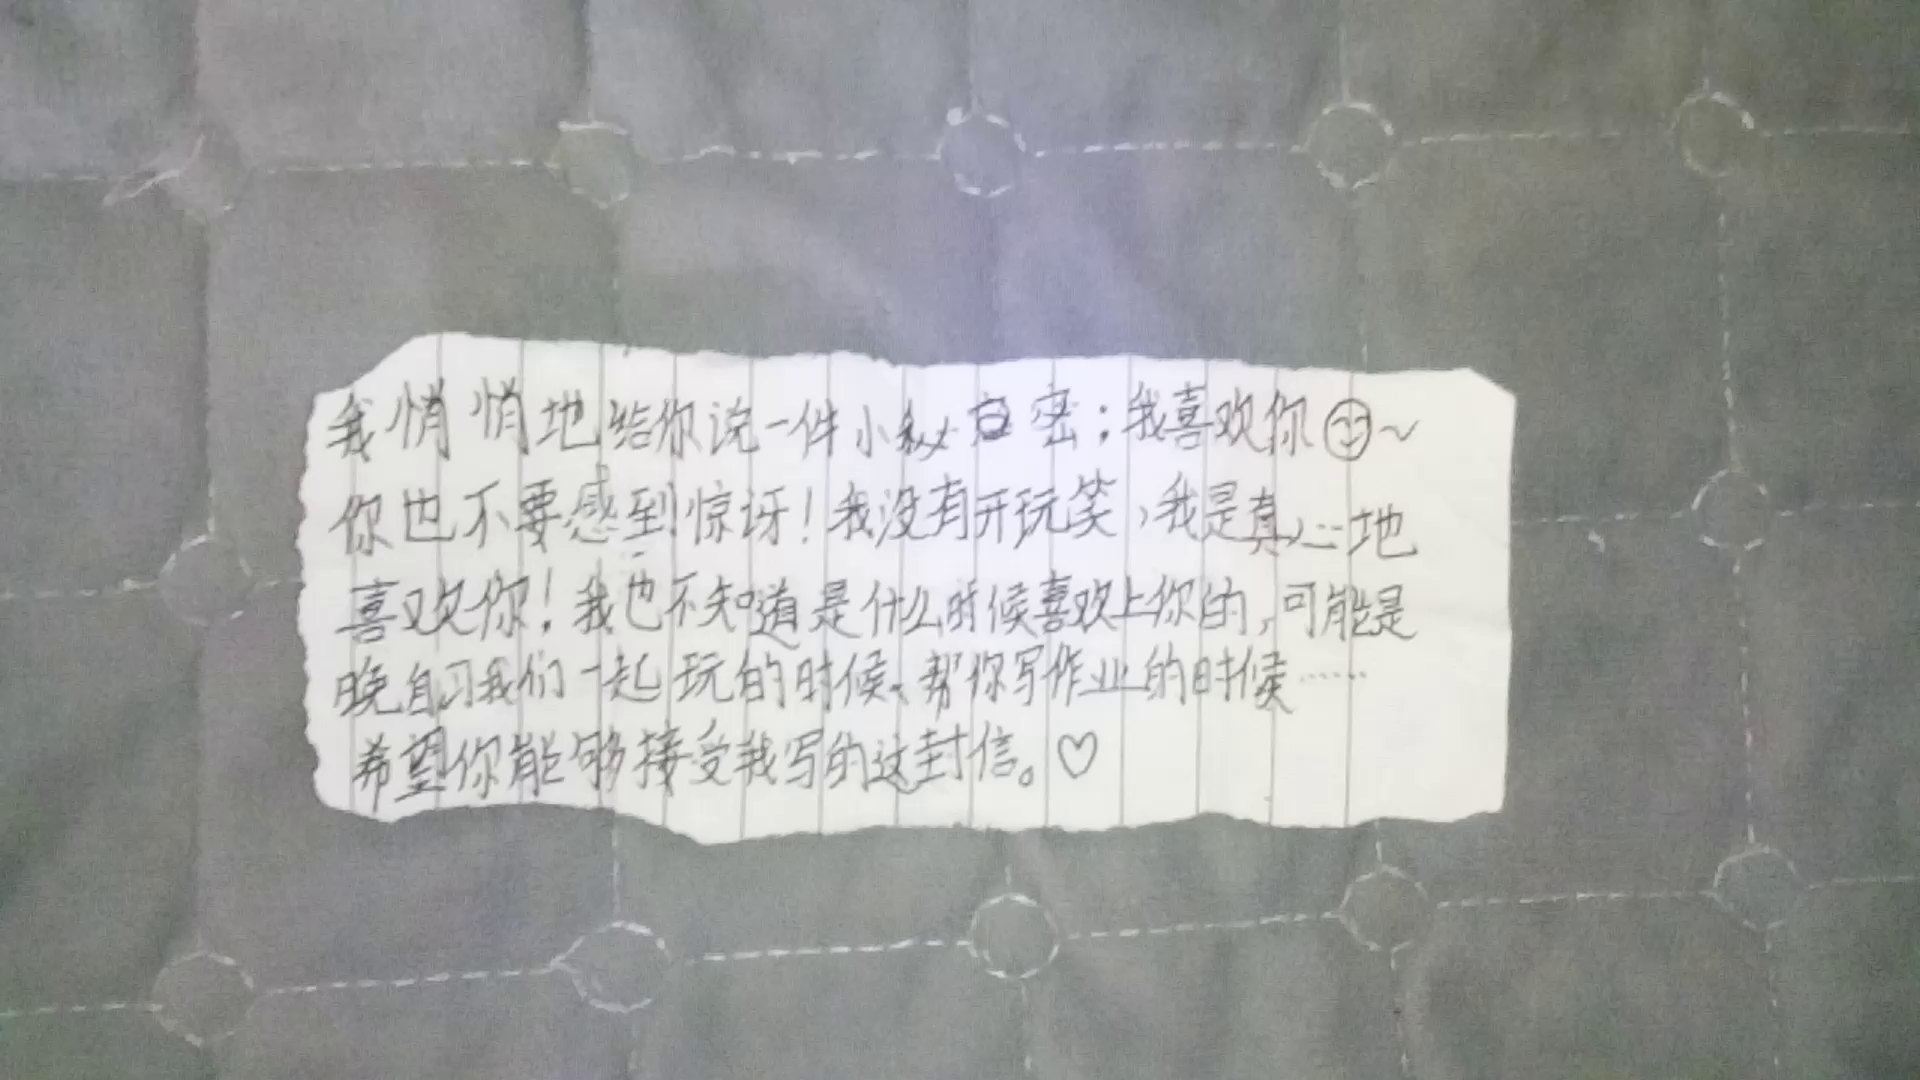 我悄悄地给你说一件小秘密：我喜欢你~
你也不要感到惊讶！我没有开玩笑，我是真心地
喜欢你！我也不知道是什么时候喜欢上你的，可能是
晚自习我们一起玩的时候、帮你写作业的时候……
希望你能够接受我写的这封信。♡